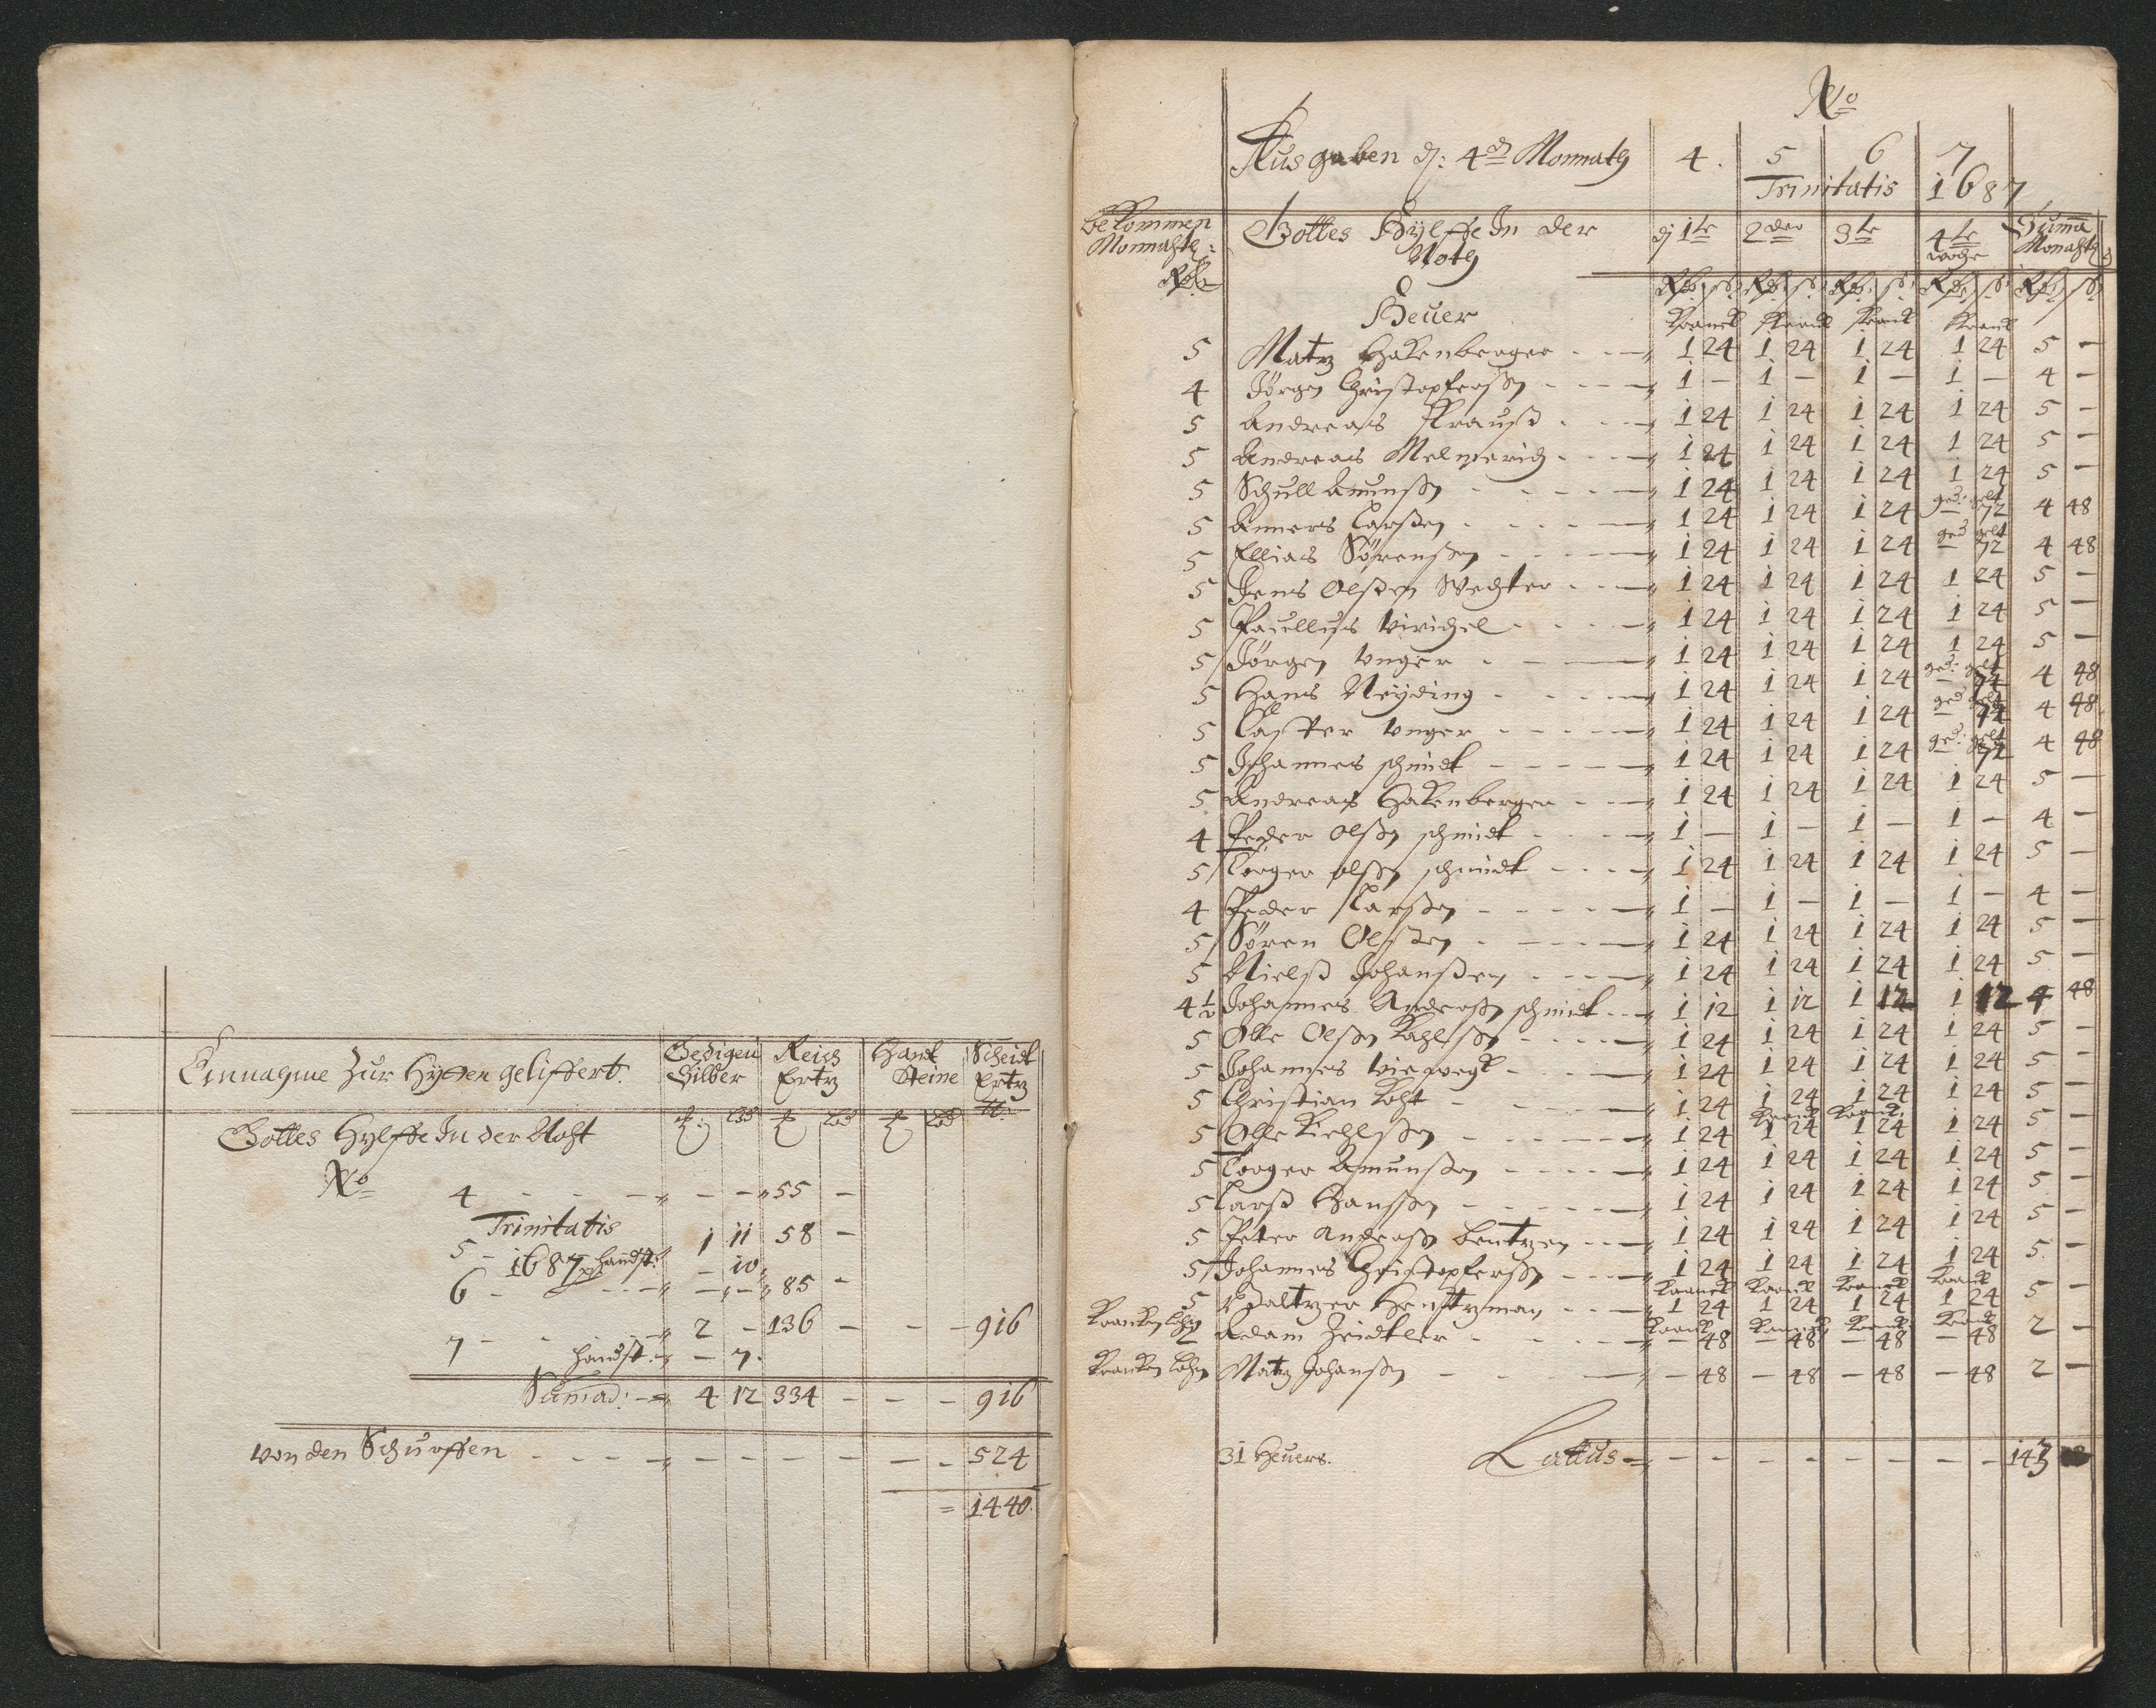 Einnahme Zur Hytten geliffert.
Gedigen Silber
Reich Ertz
Hand Steine
Scheid Ertz
Gottes Hylffe In der Noht
No 4 - - - 55 -
Trinitatis
5 - 1 11 58 -
1687 handst: - 10
6 - - - 85 -
7 - 2 - 136 - - - 916
handst: - 7.
Sumad: 4 12 334 - - - 916
von den Schurffen - - - - - - - 524
= 1440.
No
Ausgaben d: 4de Monnats 4. 5 6 7
Trinitatis 1687
bekommen Monnahtl:
Gottes Hylffe In der Noth
d 1te 2der 3te 4te woche
Suma Monahtl
Heuer
Kranck Kranck Kranck Kranck
5 Matz Hakenberger - - 1 24 1 24 1 24 1 24 5 -
4 Jörgen Christopferssen - - - 1 - 1 - 1 - 1 - 4 -
5 Andreas Krauss - - 1 24 1 24 1 24 1 24 5 -
5 Andreas Melmerich - - - 1 24 1 24 1 24 1 24 5 -
5 Schull Amunssen - - - 1 24 1 24 1 24 1 24 5 -
ged: gelt
5 Anners Larssen - - - 1 24 1 24 1 24 - 72 4 48
ged gelt
5 Ellias Sörenssen - - - 1 24 1 24 1 24 - 72 4 48
5 Jens Olssen Wechter - - 1 24 1 24 1 24 1 24 5 -
5 Paullus - - - 1 24 1 24 1 24 1 24 5 -
5 Jörgen Unger - - - 1 24 1 24 1 24 1 24 5 -
ged: gelt
5 Hans Neyding - - - 1 24 1 24 1 24 - 72 4 48
ged gelt
5 Casper Unger - - - 1 24 1 24 1 24 - 72 4 48
ged: gelt
5 Johannes schmidt - - - 1 24 1 24 1 24 - 72 4 48
5 Andreas Hakenberger - - 1 24 1 24 1 24 1 24 5 -
4 Peder Olssen schmidt - - - 1 - 1 - 1 - 1 - 4 -
5 Torger olssen schmidt - - - 1 24 1 24 1 24 1 24 5 -
4 Peder Larssen - - - 1 - 1 - 1 - 1 - 4 -
5 Sören Olssen - - - 1 24 1 24 1 24 1 24 5 -
5 Nielss Johanssen - - - 1 24 1 24 1 24 1 24 5 -
4½ Johannes Anderssen schmidt - - 1 12 1 12 1 12 1 12 4 48
5 Olle Olssen - - - 1 24 1 24 1 24 1 24 5 -
5 Johannes Vierwegt - - - 1 24 1 24 1 24 1 24 5 -
5 Christian Koht - - - 1 24 1 24 1 24 1 24 5 -
Kranck Kranck
5 Olle Kiehlssen - - - 1 24 1 24 1 24 1 24 5 -
5 Torger Amunssen - - - 1 24 1 24 1 24 1 24 5 -
5 Larss Hanssen - - - 1 24 1 24 1 24 1 24 5 -
5 Peter Anderssen Bentzen - - 1 24 1 24 1 24 1 24 5 -
5 Johannes Christopferssen - - - 1 24 1 24 1 24 1 24 5 -
Kranck Kranck Kranck Kranck
5 Baltzer - - - 1 24 1 24 1 24 1 24 5 -
Kranck Kranck Kranck Kranck
Krancken lohn 2 Adam Zeidtler - - - - 48 - 48 - 48 - 48 2 -
Krancken lohn Matz Johanssen - - - - 48 - 48 - 48 - 48 2 -
31 Heuers. Lattus - - - - - - - - - 143